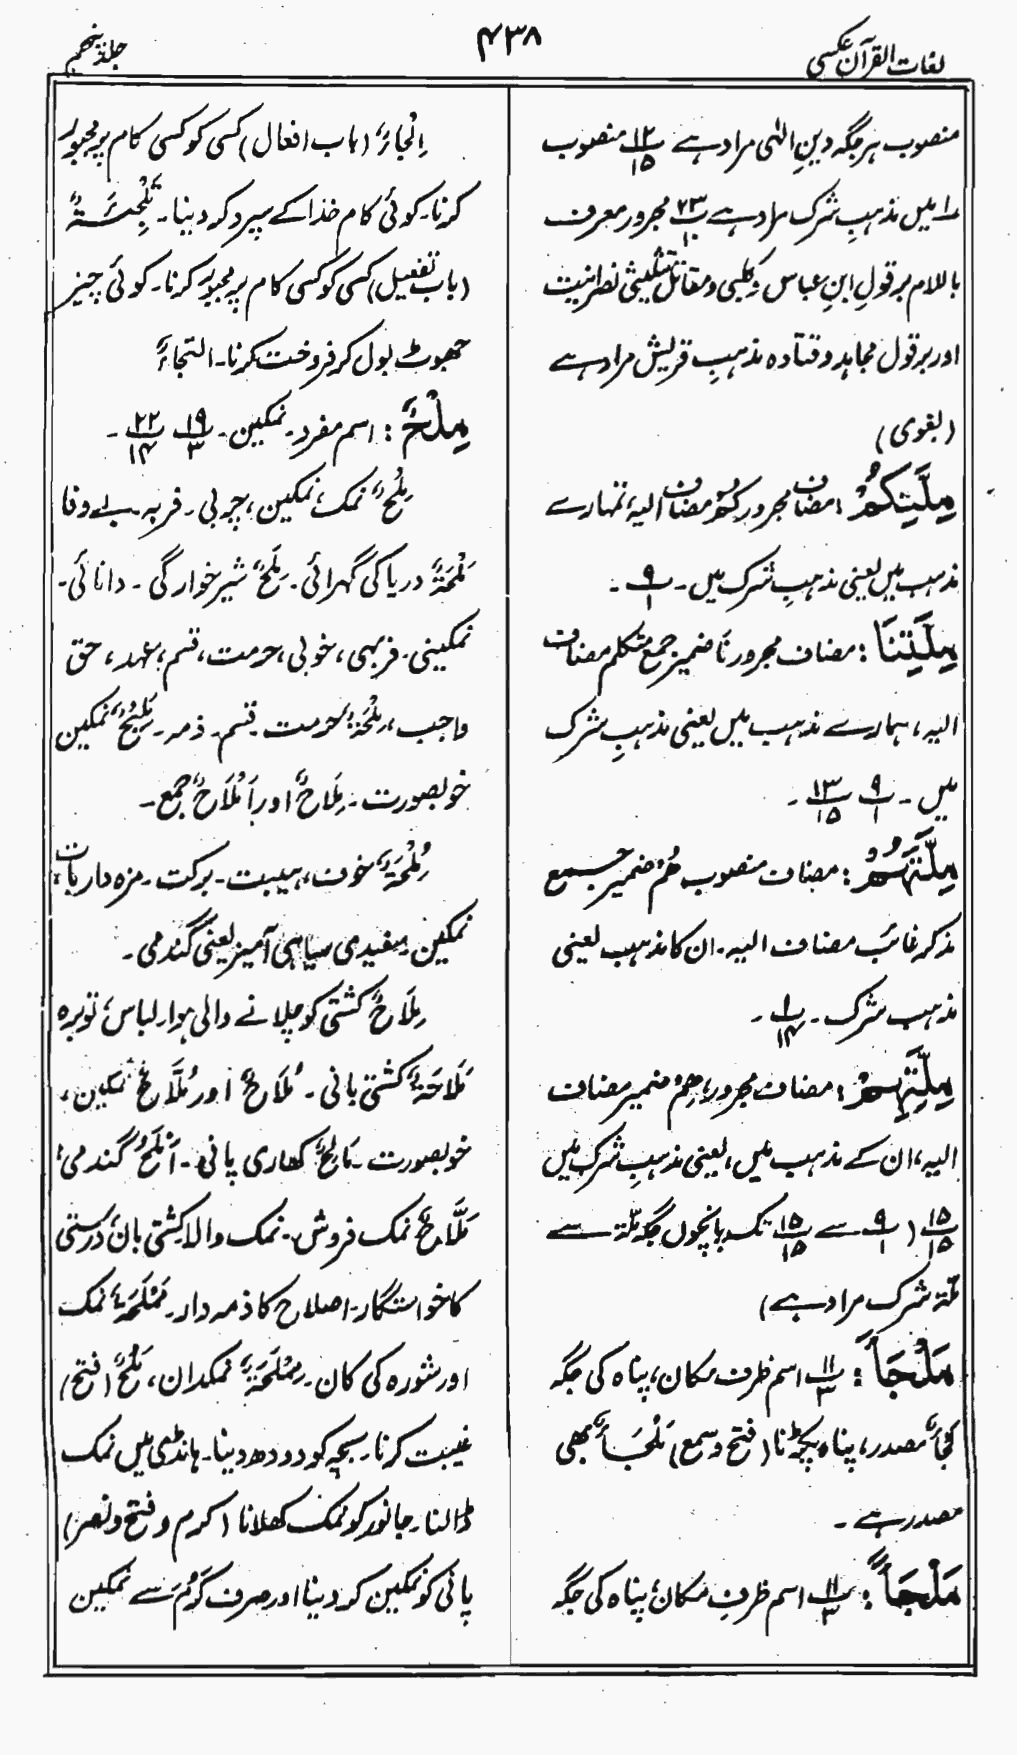 لغات القرآن عکسی
۴۳۸
جلد پنجم
منصوب ہر جگہ دینِ الٰہی مراد ہے ۱۲/۱۵ منصوب
را میں مذہبِ شرک مراد ہے ۲۳/۱۰ مجرور معرف
باللام بر قولِ ابنِ عباس و کلبی و مقاتل تثلیثی نصرانیت
اور بر قول مجاہد و قتادہ مذہبِ قریش مراد ہے
(بغوی)
مِلَّتِكُمْ : مضاف مجرور کُم مضاف الیہ، تمہارے
مذہب میں یعنی مذہبِ شرک میں۔ ۹/۱ ۔
مِلَّتِنَا : مضاف مجرور نا ضمیر جمع متکلم مضاف
الیہ، ہمارے مذہب میں یعنی مذہبِ شرک
میں ۔ ۹/۱ ۱۳/۱۵ ۔
مِلَّتَهُمْ : مضاف منصوب ھُم ضمیر جمع
مذکر غائب مضاف الیہ۔ ان کا مذہب یعنی
مذہب شرک ۔ ۱/۱۴ ۔
مِلَّتِهِمْ : مضاف مجرور، ھِم ضمیر مضاف
الیہ، ان کے مذہب میں، یعنی مذہبِ شرک میں
۱۵/۱۵ ( ۹/۱ سے ۱۵/۱۵ تک پانچوں جگہ ملۃ سے
ملۃ شرک مراد ہے)
مَلْجَأَ : ۱۱/۳ اسم ظرف مکان، پناہ کی جگہ
مصدر، پناہ پکڑنا (فتح و سمع) مَلْجَأٌ بھی
مصدر ہے ۔
مَلْجَأً : ۱۱/۳ اسم ظرفِ مکان، پناہ کی جگہ
اِلْجَاءٌ (باب افعال) کسی کو کسی کام پر مجبور
کرنا۔ کوئی کام خدا کے سپرد کر دینا۔ تَلْجِئَةٌ
(باب تفعیل) کسی کو کسی کام پر مجبور کرنا۔ کوئی چیز
جھوٹ بول کر فروخت کرنا۔ التجاءٌ
مِلْحٌ : اسم مفرد۔ نمکین۔ ۱۹/۳ ۲۲/۱۴ ۔
مِلْحٌ نمک، نمکین، چربی ۔ فربہ ۔ بے وفا
مَلْحَةٌ دریا کی گہرائی۔ مِلْحٌ شیر خوارگی ۔ دانائی۔
نمکینی۔ فربہی، خوبی، حرمت، قسم، عہد، حق
واجب، مِلْحَةٌ حرمت ۔ قسم۔ ذمہ۔ مَلِیْحٌ نمکین
خوبصورت ۔ مِلَاحٌ اور اَمْلَاحٌ جمع۔
مُلْحَةٌ خوف، ہیبت ۔ برکت ۔ مزہ دار بات
نمکین۔ سفیدی سیاہی آمیز یعنی گندمی۔
مِلَاحٌ کشتی کو چلانے والی ہوا۔ لباس، توبرہ
مَلَاحَةٌ کشتی بانی ۔ مُلَاحٌ اور مُلَّاحٌ نمکین،
خوبصورت ۔ مَالِحٌ کھاری پانی ۔ اَمْلَحُ گندمی
مَلَّاحٌ نمک فروش۔ نمک والا کشتی بان، درستی
کا خواستگار۔ اصلاح کا ذمہ دار۔ مَمْلَحَةٌ نمک
اور شورہ کی کان۔ مِمْلَحَةٌ نمکدان، مَلْحٌ (فتح)
غیبت کرنا۔ بچہ کو دودھ دینا۔ ہانڈی میں نمک
ڈالنا۔ جانور کو نمک کھلانا (کرم و فتح و نصر)
پانی کو نمکین کر دینا اور صرف کَرُمَ سے نمکین